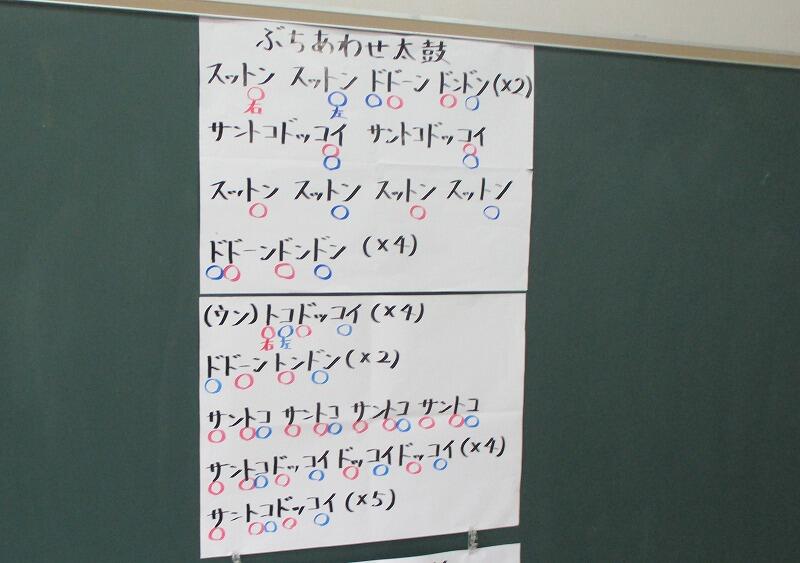 ぶちあわせ太鼓
スットン スットン ドドーン ドンドン(×2)
右 左
サントコドッコイ サントコドッコイ
スットン スットン スットン スットン
ドドーンドンドン (×4)
(ウン)トコドッコイ(×4)
右 左
ドドーントンドン(×2)
サントコ サントコ サントコ サントコ
サントコドッコイドッコイドッコイ(×4)
サントコドッコイ(×5)